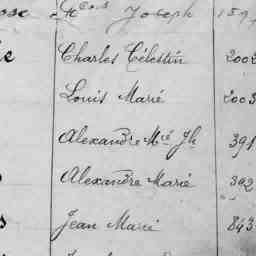 Joseph 159
Charles Célestin 2002
Louis Marié 2003
Alexandre Mié Jh 391
Alexandre Marié 392
Jean Marié 843